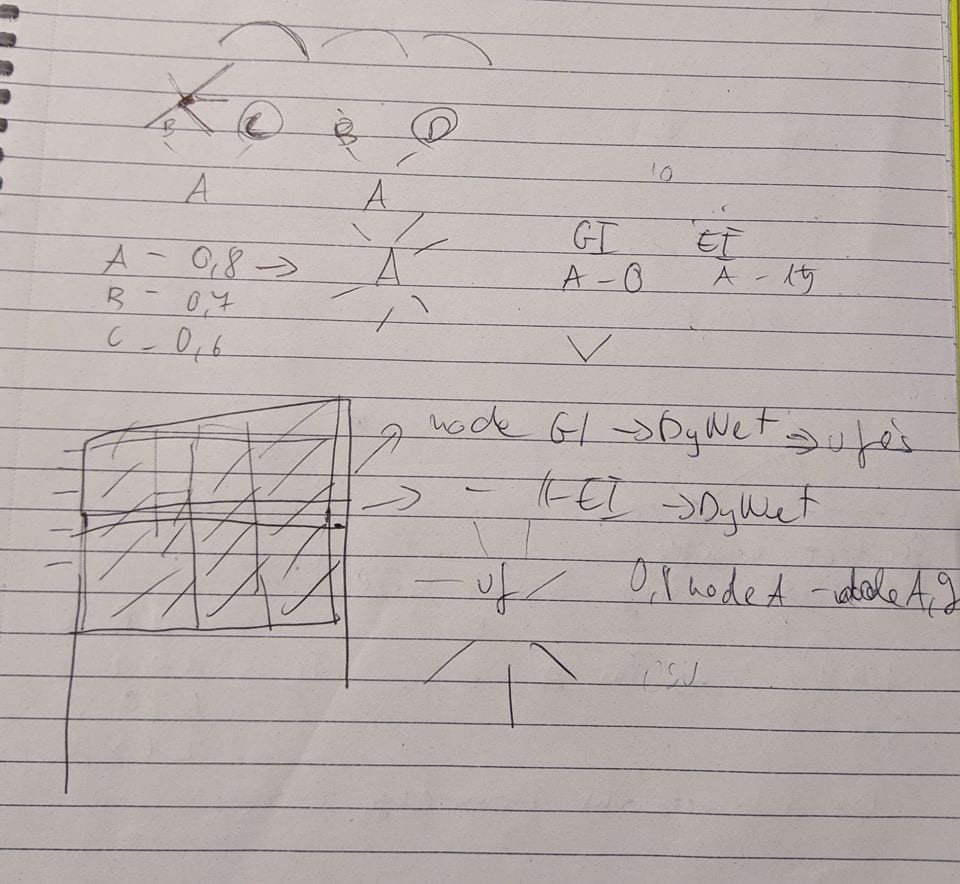 B C B D
A A
10
GI EI
A - 0,8 → A A - 0 A - 15
B - 0,7
C - 0,6
node GI → DyNet →
- 11 - EI → DyNet
0,1 node A - node A,